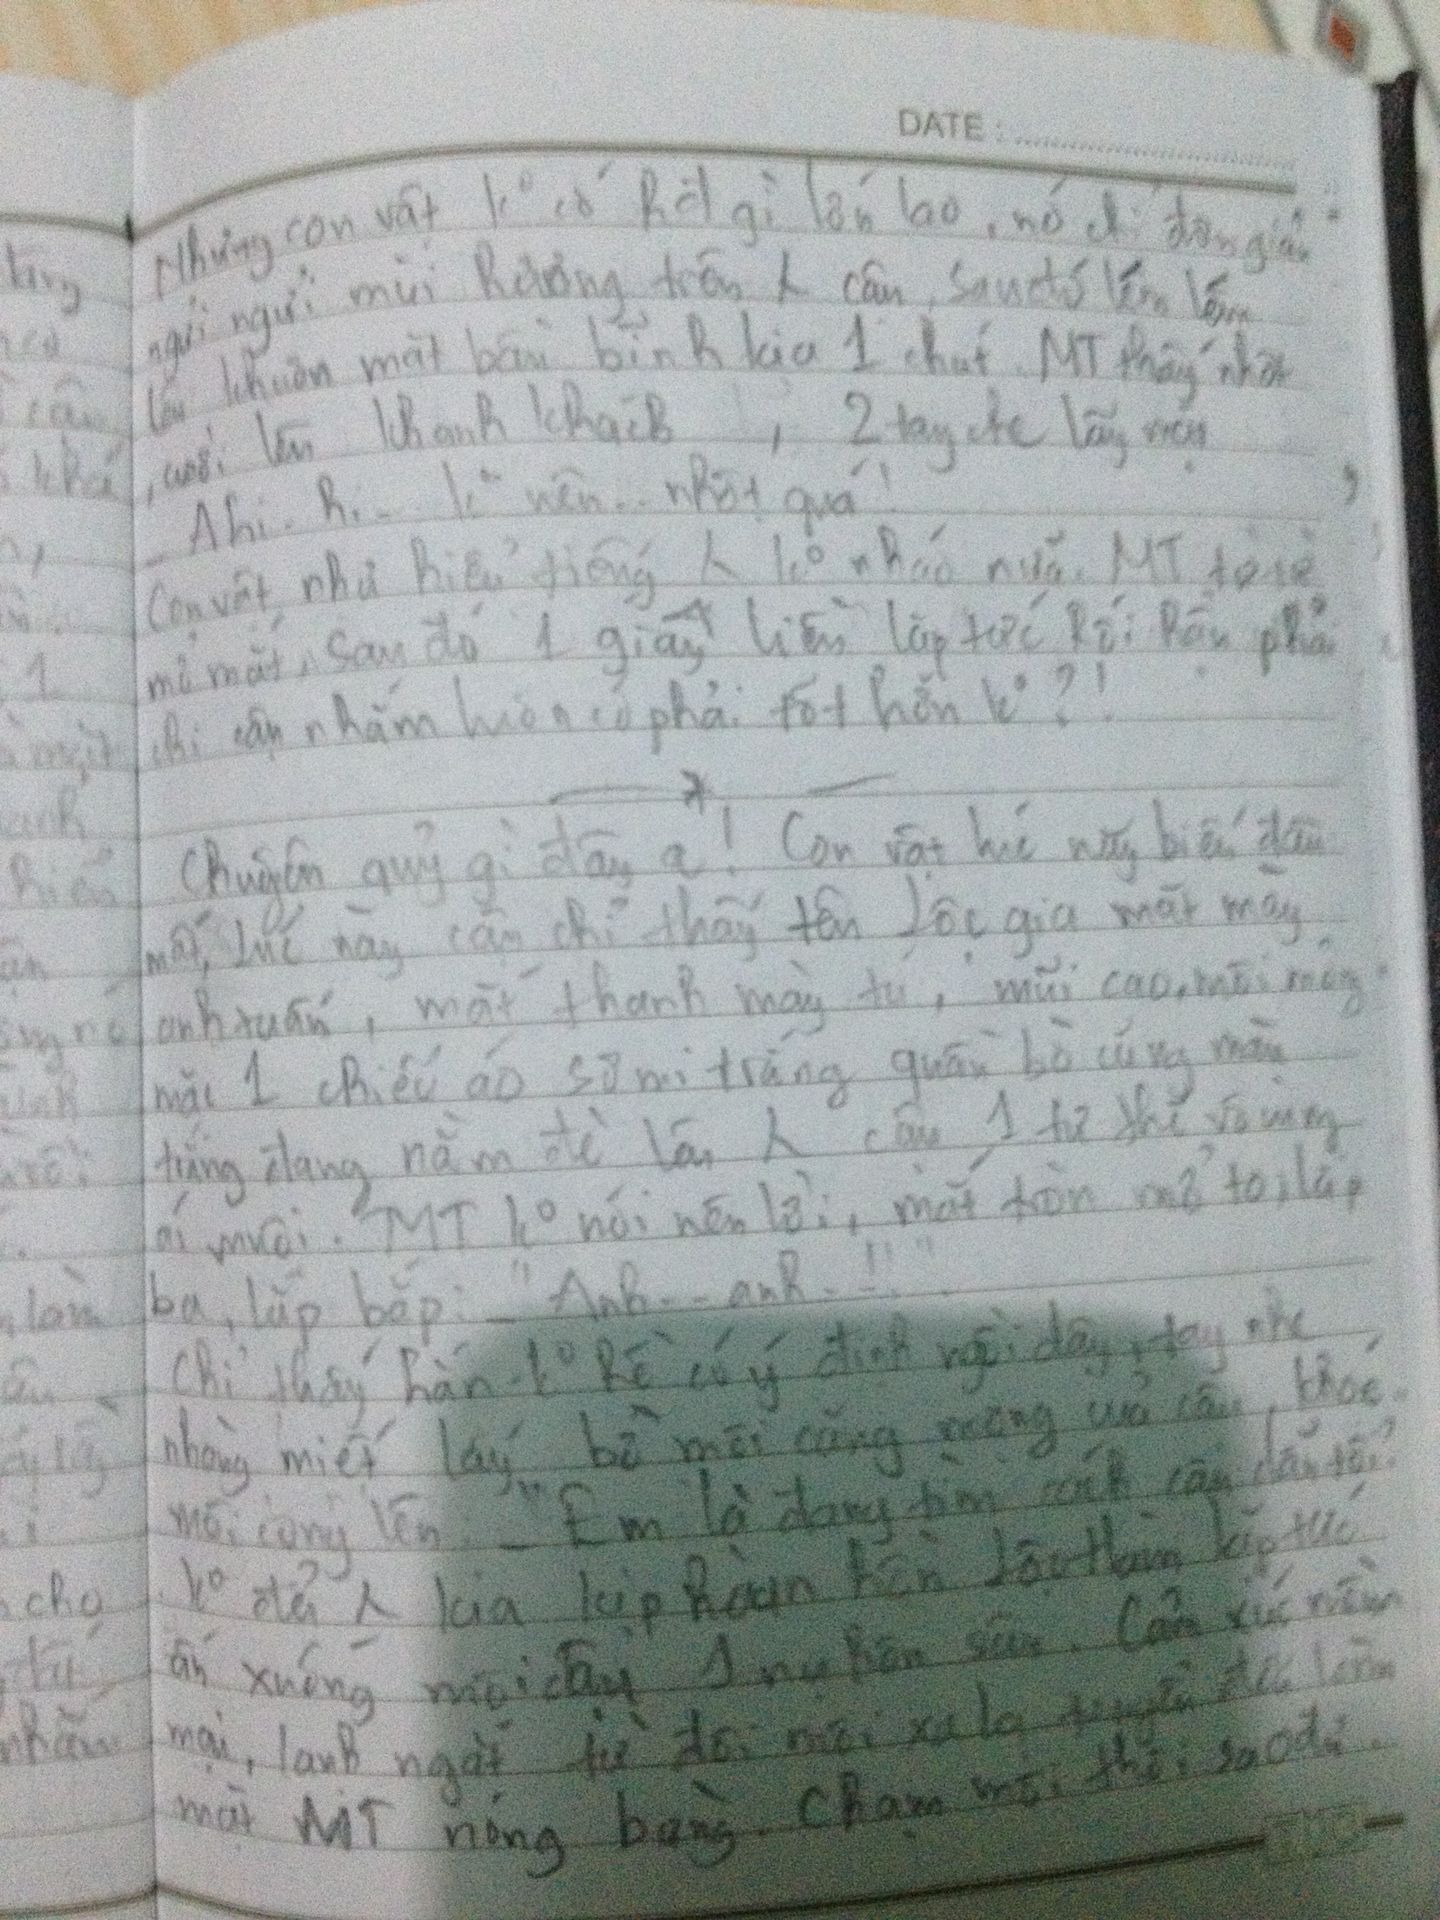 DATE :
Nhưng con vật k° có hđ gì lớn lao, nó chỉ đơn giản
ngửi ngửi mùi hương trên λ cậu, sau đó lém lém
lên khuôn mặt bầu bĩnh kia 1 chút. MT thấy nhột
, cười lên khanh khách, 2 tay che lấy mặt
_ Ahi. hi.. k° nên.. nhột quá!
Con vật như hiểu tiếng λ k° nháo nữa. MT từ từ
mở mắt, sau đó 1 giây liền lập tức hối hận, phải
chi cậu nhắm luôn có phải tốt hơn k°?!
Chuyện quỷ gì đây a! Con vật lúc nãy biến đâu
mất, lúc này cậu chỉ thấy tên Lộc gia mặt mày
anh tuấn, mắt thanh mày tú, mũi cao, môi mỏng
mặc 1 chiếc áo sơ mi trắng quần bò cũng màu
trắng đang nằm đè lên λ cậu 1 tư thế vô cùng
ái muội. MT k° nói nên lời, mắt tròn mở to, lắp
ba, lắp bắp: _ "Anh... anh..!!"
Chỉ thấy hắn k° hề có ý định ngồi dậy, tay nhẹ
nhàng miết lấy bờ môi căng mọng của cậu, khoé
môi cong lên. _ "Em là đang tìm cách câu dẫn tôi?"
k° để λ kia kịp hoàn hồn Lộc Hàm lập tức
ấn xuống môi cậu 1 nụ hôn sâu. Cảm xúc mềm
mại, lanh ngắt từ đôi môi xa lạ truyền đến làm
mặt MT nóng bằng. Chạm môi thôi sao đủ.